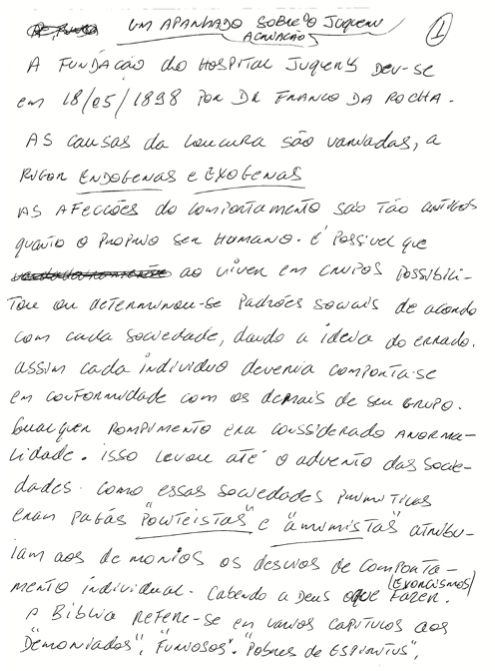 UM APANHADO SOBRE O JUQUERY
ACUSAÇÃO
1
A FUNDAÇÃO do HOSPITAL JUQUERY DEU-SE
em 18/05/1898 POR DR FRANCO DA ROCHA.
AS causas da LOUCURA são variadas, a
RIGOR ENDOGENAS e EXOGENAS
AS AFECCÕES do comportamento são tão antigas
quanto o próprio ser Humano. É possível que
ao viver em GRUPOS POSSIBILI-
TOU ou determinou-se PADRÕES SOCIAIS de acordo
com cada sociedade, dando a ideia do errado.
Assim cada indivíduo deveria comporta-se
em conformidade com os demais de seu GRUPO.
Qualquer rompimento era considerado ANORMA-
LIDADE. isso levou até o advento das socie-
dades. como essas sociedades primitivas
eram pagãs "POLITEISTAS" e "animistas" atribu-
iam aos demonios os desvios de comporta-
mento individual. Cabendo a Deus o que FAZER. (EXORCISMOS)
A Biblia REFERE-se em varios capitulos aos
"DEMONIADOS", "FURIOSOS". "POBRES de ESPIRITUS",